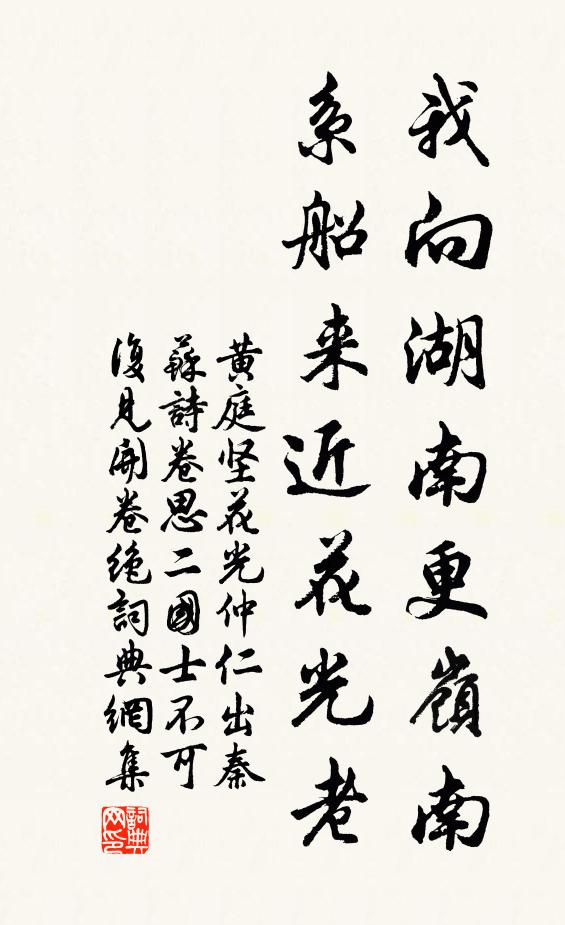 我向湖南更嶺南
系船来近花光老
黄庭坚花光仲仁出秦
蘇詩卷思二國士不可
復見開卷絶詞典網集
詞典网印